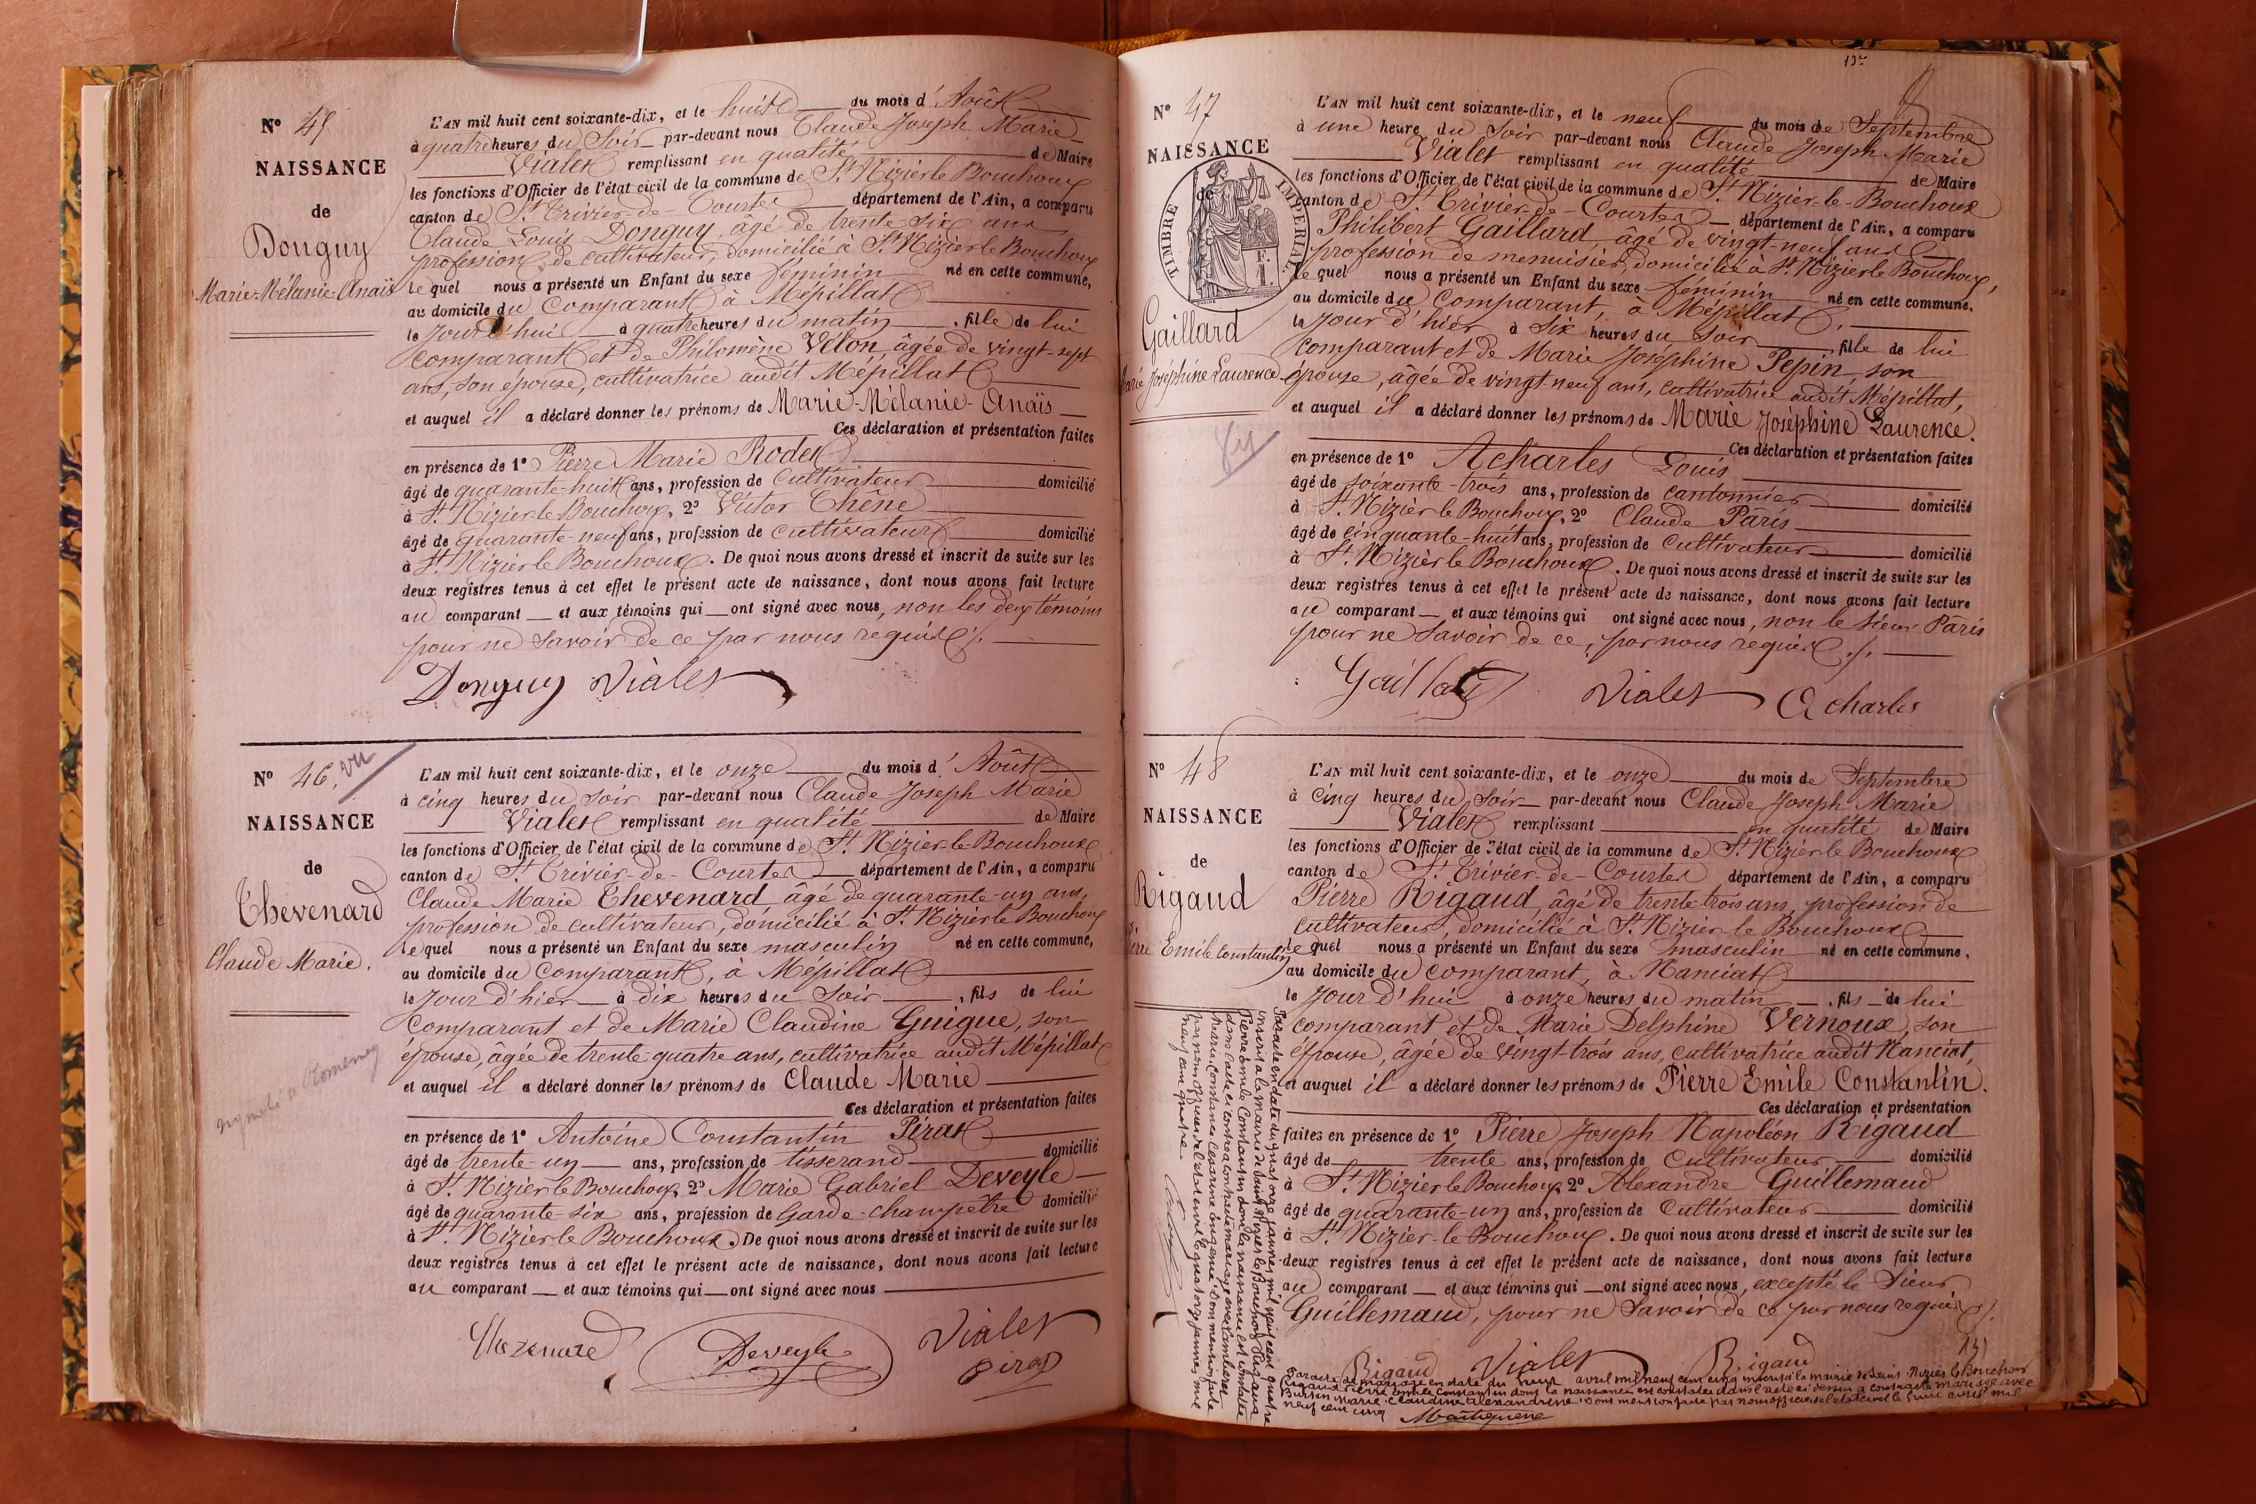 N° 45
NAISSANCE
de
Donguy
Marie-Mélanie-Anaïs
L'AN mil huit cent soixante-dix, et le huit du mois d'Août
à quatre heures du Soir par-devant nous Claude Joseph Marie
Vialet remplissant en qualité de Maire
les fonctions d'Officier de l'état civil de la commune de St Nizier le Bouchoux
canton de St Trivier-de-Courtes département de l'Ain, a comparu
Claude Louis Donguy, âgé de trente-six ans
profession de cultivateur, domicilié à St Nizier le Bouchoux
le quel nous a présenté un Enfant du sexe féminin né en cette commune,
au domicile du Comparant à Mépillat
le jour d'hui à quatre heures du matin, fille de lui
comparant et de Philomène Vélon, âgée de vingt-sept
ans, son épouse, cultivatrice audit Mépillat
et auquel il a déclaré donner les prénoms de Marie-Mélanie-Anaïs
Ces déclaration et présentation faites
en présence de 1° Pierre Marie Rodet
âgé de quarante-huit ans, profession de Cultivateur domicilié
à St Nizier le Bouchoux, 2° Victor Chêne
âgé de quarante-neuf ans, profession de cultivateur domicilié
à St Nizier le Bouchoux. De quoi nous avons dressé et inscrit de suite sur les
deux registres tenus à cet effet le présent acte de naissance, dont nous avons fait lecture
au comparant et aux témoins qui ont signé avec nous, non les deux témoins
pour ne savoir de ce par nous requis ./.
Donguy Vialet
N° 46. vu
NAISSANCE
de
Thevenard
Claude Marie.
L'AN mil huit cent soixante-dix, et le onze du mois d'Août
à cinq heures du Soir par-devant nous Claude Joseph Marie
Vialet remplissant en qualité de Maire
les fonctions d'Officier de l'état civil de la commune de St Nizier-le-Bouchoux
canton de St Trivier-de-Courtes département de l'Ain, a comparu
Claude Marie Thevenard âgé de quarante-un ans,
profession de cultivateur, domicilié à St Nizier le Bouchoux
le quel nous a présenté un Enfant du sexe masculin né en cette commune,
au domicile du Comparant, à Mépillat
le jour d'hier à dix heures du Soir, fils de lui
comparant et de Marie Claudine Guigue, son
épouse, âgée de trente-quatre ans, cultivatrice audit Mépillat
et auquel il a déclaré donner les prénoms de Claude Marie
Ces déclaration et présentation faites
en présence de 1° Antoine Constantin Pirat
âgé de trente-un ans, profession de tisserand domicilié
à St Nizier le Bouchoux, 2° Marie Gabriel Deveyle
âgé de quarante-six ans, profession de Garde-champêtre domicilié
à St Nizier le Bouchoux. De quoi nous avons dressé et inscrit de suite sur les
deux registres tenus à cet effet le présent acte de naissance, dont nous avons fait lecture
au comparant et aux témoins qui ont signé avec nous
Thevenard Deveyle Vialet
Pirat
N° 47
NAISSANCE
de
TIMBRE IMPERIAL
Gaillard
Marie Joséphine Laurence
vu
L'AN mil huit cent soixante-dix, et le neuf du mois de Septembre
à une heure du Soir par-devant nous Claude Joseph Marie
Vialet remplissant en qualité de Maire
les fonctions d'Officier de l'état civil de la commune de St Nizier-le-Bouchoux
canton de St Trivier-de-Courtes département de l'Ain, a comparu
Philibert Gaillard âgé de vingt-neuf ans
profession de menuisier, domicilié à St Nizier le Bouchoux,
le quel nous a présenté un Enfant du sexe féminin né en cette commune.
au domicile du Comparant, à Mépillat,
le jour d'hier à six heures du Soir, fille de lui
comparant et de Marie Joséphine Pepin, son
épouse, âgée de vingt neuf ans, cultivatrice audit Mépillat,
et auquel il a déclaré donner les prénoms de Marie Joséphine Laurence.
Ces déclaration et présentation faites
en présence de 1° Acharles Louis
âgé de soixante-trois ans, profession de cantonnier domicilié
à St Nizier le Bouchoux, 2° Claude Pâris
âgé de cinquante-huit ans, profession de Cultivateur domicilié
à St Nizier le Bouchoux. De quoi nous avons dressé et inscrit de suite sur les
deux registres tenus à cet effet le présent acte de naissance, dont nous avons fait lecture
au comparant et aux témoins qui ont signé avec nous, non le sieur Pâris
pour ne savoir de ce, par nous requis ./.
Gaillard Vialet Acharles
N° 48
NAISSANCE
de
Rigaud
Pierre Emile Constantin
L'AN mil huit cent soixante-dix, et le onze du mois de Septembre
à Cinq heures du Soir par-devant nous Claude Joseph Marie
Vialet remplissant en qualité de Maire
les fonctions d'Officier de l'état civil de la commune de St Nizier-le-Bouchoux
canton de St Trivier-de-Courtes département de l'Ain, a comparu
Pierre Rigaud, âgé de trente trois ans, profession de
cultivateur, domicilié à St Nizier le Bouchoux
le quel nous a présenté un Enfant du sexe masculin né en cette commune,
au domicile du comparant, à Nanciat
le jour d'hui à onze heures du matin, fils de lui
comparant et de Marie Delphine Vernoux, son
épouse, âgée de vingt-trois ans, cultivatrice audit Nanciat,
et auquel il a déclaré donner les prénoms de Pierre Emile Constantin.
Ces déclaration et présentation
faites en présence de 1° Pierre Joseph Napoléon Rigaud
âgé de trente ans, profession de Cultivateur domicilié
à St Nizier le Bouchoux 2° Alexandre Guillemaud
âgé de quarante-un ans, profession de Cultivateur domicilié
à St Nizier-le Bouchoux. De quoi nous avons dressé et inscrit de suite sur les
deux registres tenus à cet effet le présent acte de naissance, dont nous avons fait lecture
au comparant et aux témoins qui ont signé avec nous, excepté le Sieur
Guillemaud, pour ne savoir de ce par nous requis ./.
Rigaud Vialet Rigaud
Par acte de mariage en date du neuf avril mil neuf cent cinq inscrit à la mairie de Saint Nizier le Bouchoux
Rigaud Pierre Emile Constantin dont la naissance est constatée dans l'acte ci-dessus a contracté mariage avec
Buisson Marie Claudine Alexandrine. Dont mention faite par nous officier de l'état civil le neuf avril mil
neuf cent cinq
Par acte en date du quatorze janvier mil neuf cent quatre
inscrit à la mairie de Saint Nizier le Bouchoux Rigaud
Pierre Emile Constantin dont la naissance est constatée
dans l'acte ci-contre a contracté mariage avec
par nous officier de l'état civil le quatorze janvier mil
neuf cent quatre.